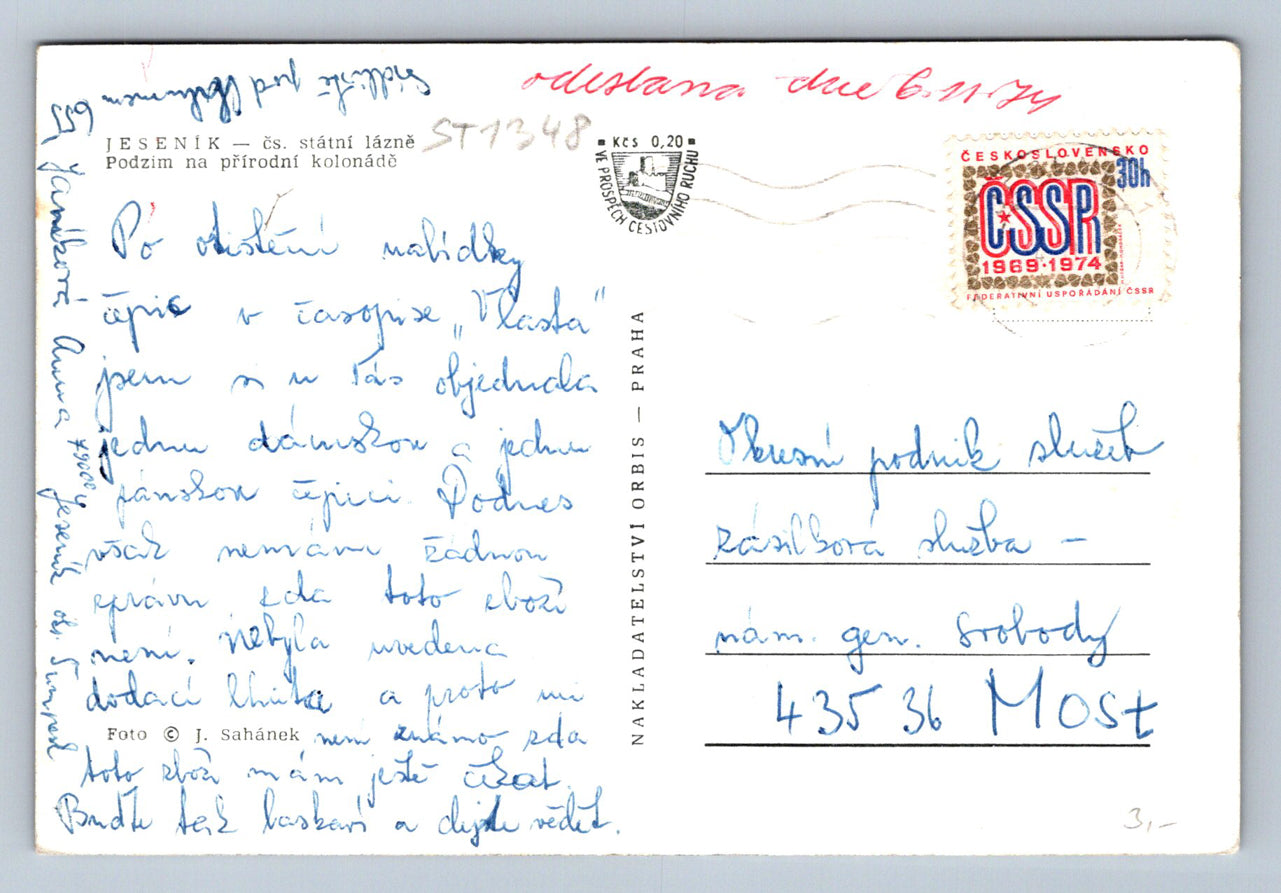 odeslana dne 6.11.74
Sídliště pod Chlumem 655
ST1348
JESENÍK — čs. státní lázně
Podzim na přírodní kolonádě
Kčs 0,20
VE PROSPĚCH CESTOVNÍHO RUCHU
ČESKOSLOVENSKO
30h
ČSSR
1969·1974
FEDERATIVNÍ USPOŘÁDÁNÍ ČSSR
Po otištění nabídky
čepic v časopise „Vlasta"
jsem si u Vás objednala
jednu dámskou a jednu
pánskou čepici. Podnes
však nemám žádnou
zprávu zda toto zboží
není. Nebyla uvedena
dodací lhůta a proto mi
není známo zda
toto zboží mám ještě čekat.
Buďte tak laskaví a dejte vědět.
Foto © J. Sahánek
Janíková Anna 79001 Jeseník okr. Šumperk
NAKLADATELSTVÍ ORBIS — PRAHA
Okresní podnik služeb
zásilková služba –
nám. gen. Svobody
435 36 Most
3,-